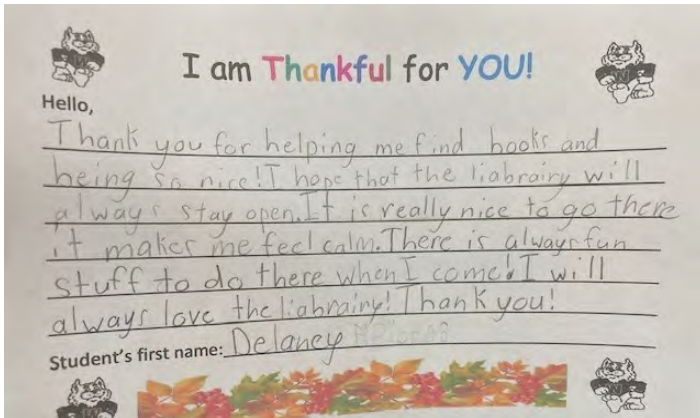 I am Thankful for YOU!
Hello,
Thank you for helping me find books and
being so nice! I hope that the liabrairy will
always stay open. It is really nice to go there
it makes me feel calm. There is always fun
stuff to do there when I come! I will
always love the liabrairy! Thank you!
Student's first name: Delaney